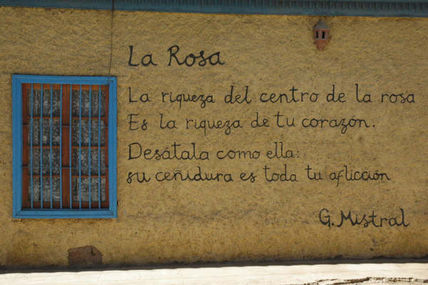 La Rosa
La riqueza del centro de la rosa
Es la riqueza de tu corazón.
Desátala como ella:
su ceñidura es toda tu aflicción
G. Mistral